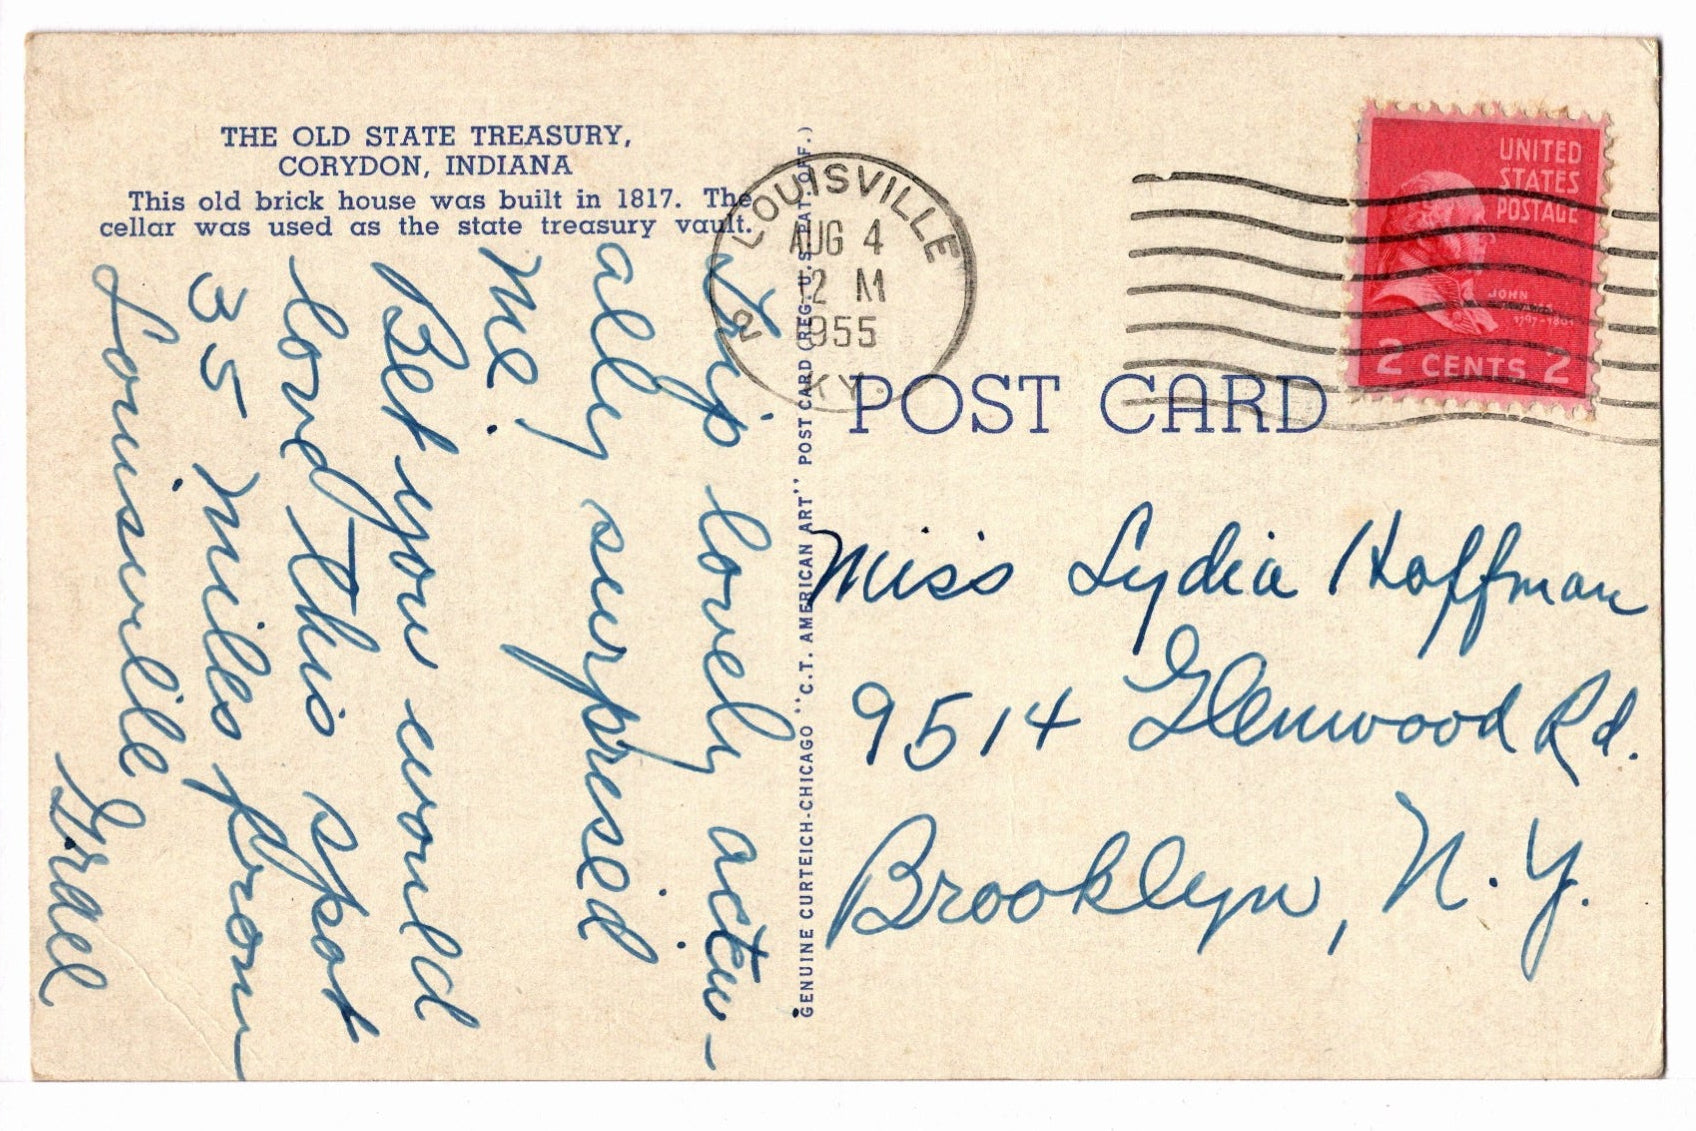 THE OLD STATE TREASURY,
CORYDON, INDIANA
This old brick house was built in 1817. The
cellar was used as the state treasury vault.
Trip lovely actu-
ally surprised
me.
Bet you would
love this spot
35 miles from
Louisville
Grace
GENUINE CURTEICH-CHICAGO "C.T. AMERICAN ART" POST CARD (REG. U.S. PAT. OFF.)
LOUISVILLE
AUG 4
12 M
1955
KY.
2
UNITED
STATES
POSTAGE
JOHN
ADAMS
1797-1801
2 CENTS 2
POST CARD
Miss Lydia Hoffman
9514 Glenwood Rd.
Brooklyn, N.Y.